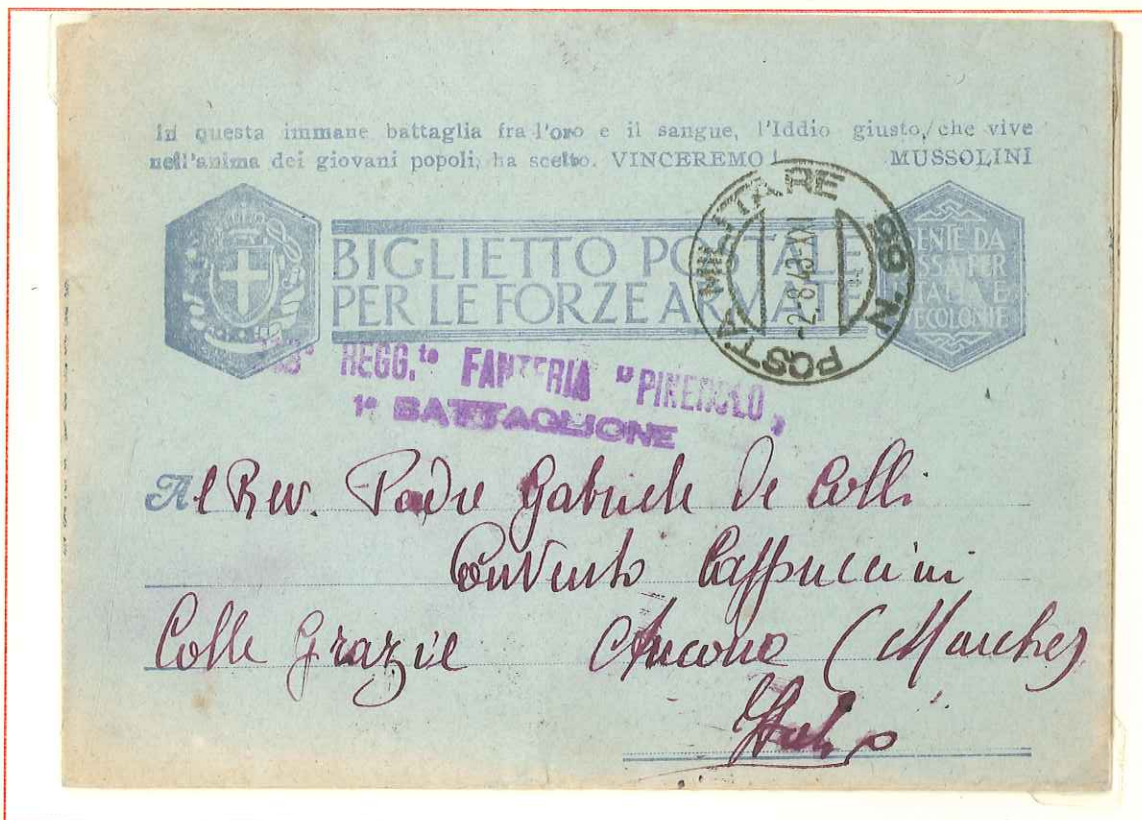 In questa immane battaglia fra l'oro e il sangue, l'Iddio giusto, che vive
nell'anima dei giovani popoli, ha scelto. VINCEREMO! MUSSOLINI
BIGLIETTO POSTALE
PER LE FORZE ARMATE
ESENTE DA
TASSA PER
ITALIA E
COLONIE
POSTA MILITARE N. 99
-2.8.43-XXI
REGG.to FANTERIA "PINEROLO"
1° BATTAGLIONE
Al Rev. Padre Gabriele De Colli
Convento Cappuccini
Colle Grazie Ancona (Marche)
Italia